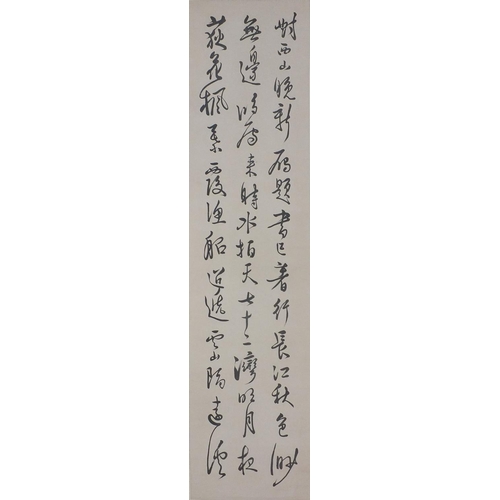 對西山晚新雁題書已著行長江秋色渺
無邊鴻雁來時水拍天七十二灣明月夜
荻花楓葉覆漁船迢遞雲山隔遠